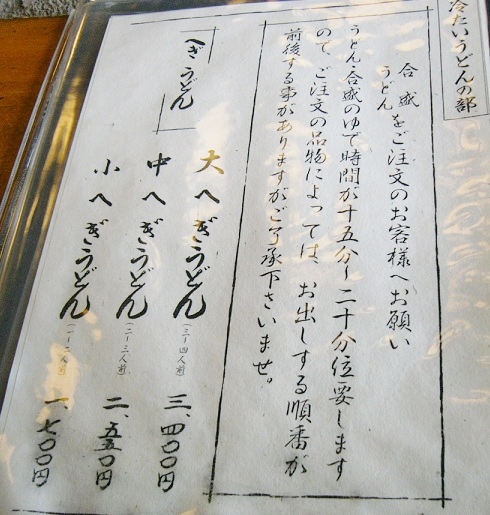 冷たいうどんの部
合盛
うどんをご注文のお客様へお願い
うどん、合盛のゆで時間が十五分〜二十分位要します
ので、ご注文の品物によっては、お出しする順番が
前後する事がありますがご了承下さいませ。
へぎうどん
大へぎうどん(三〜四人前) 三、四〇〇円
中へぎうどん(二〜三人前) 二、五五〇円
小へぎうどん(一〜二人前) 一、七〇〇円